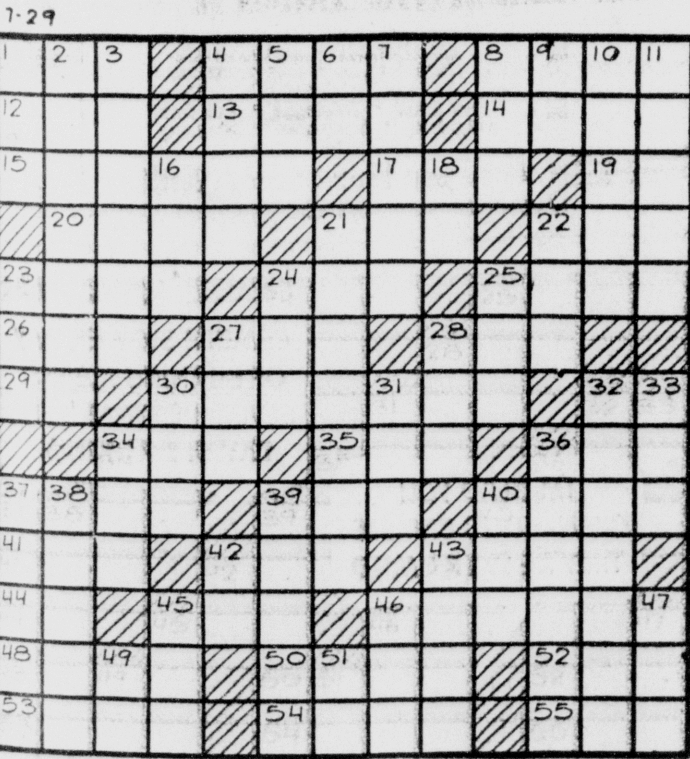 7-29
1 2 3 4 5 6 7 8 9 10 11
12 13 14
15 16 17 18 19
20 21 22
23 24 25
26 27 28
29 30 31 32 33
34 35 36
37 38 39 40
41 42 43
44 45 46 47
48 49 50 51 52
53 54 55